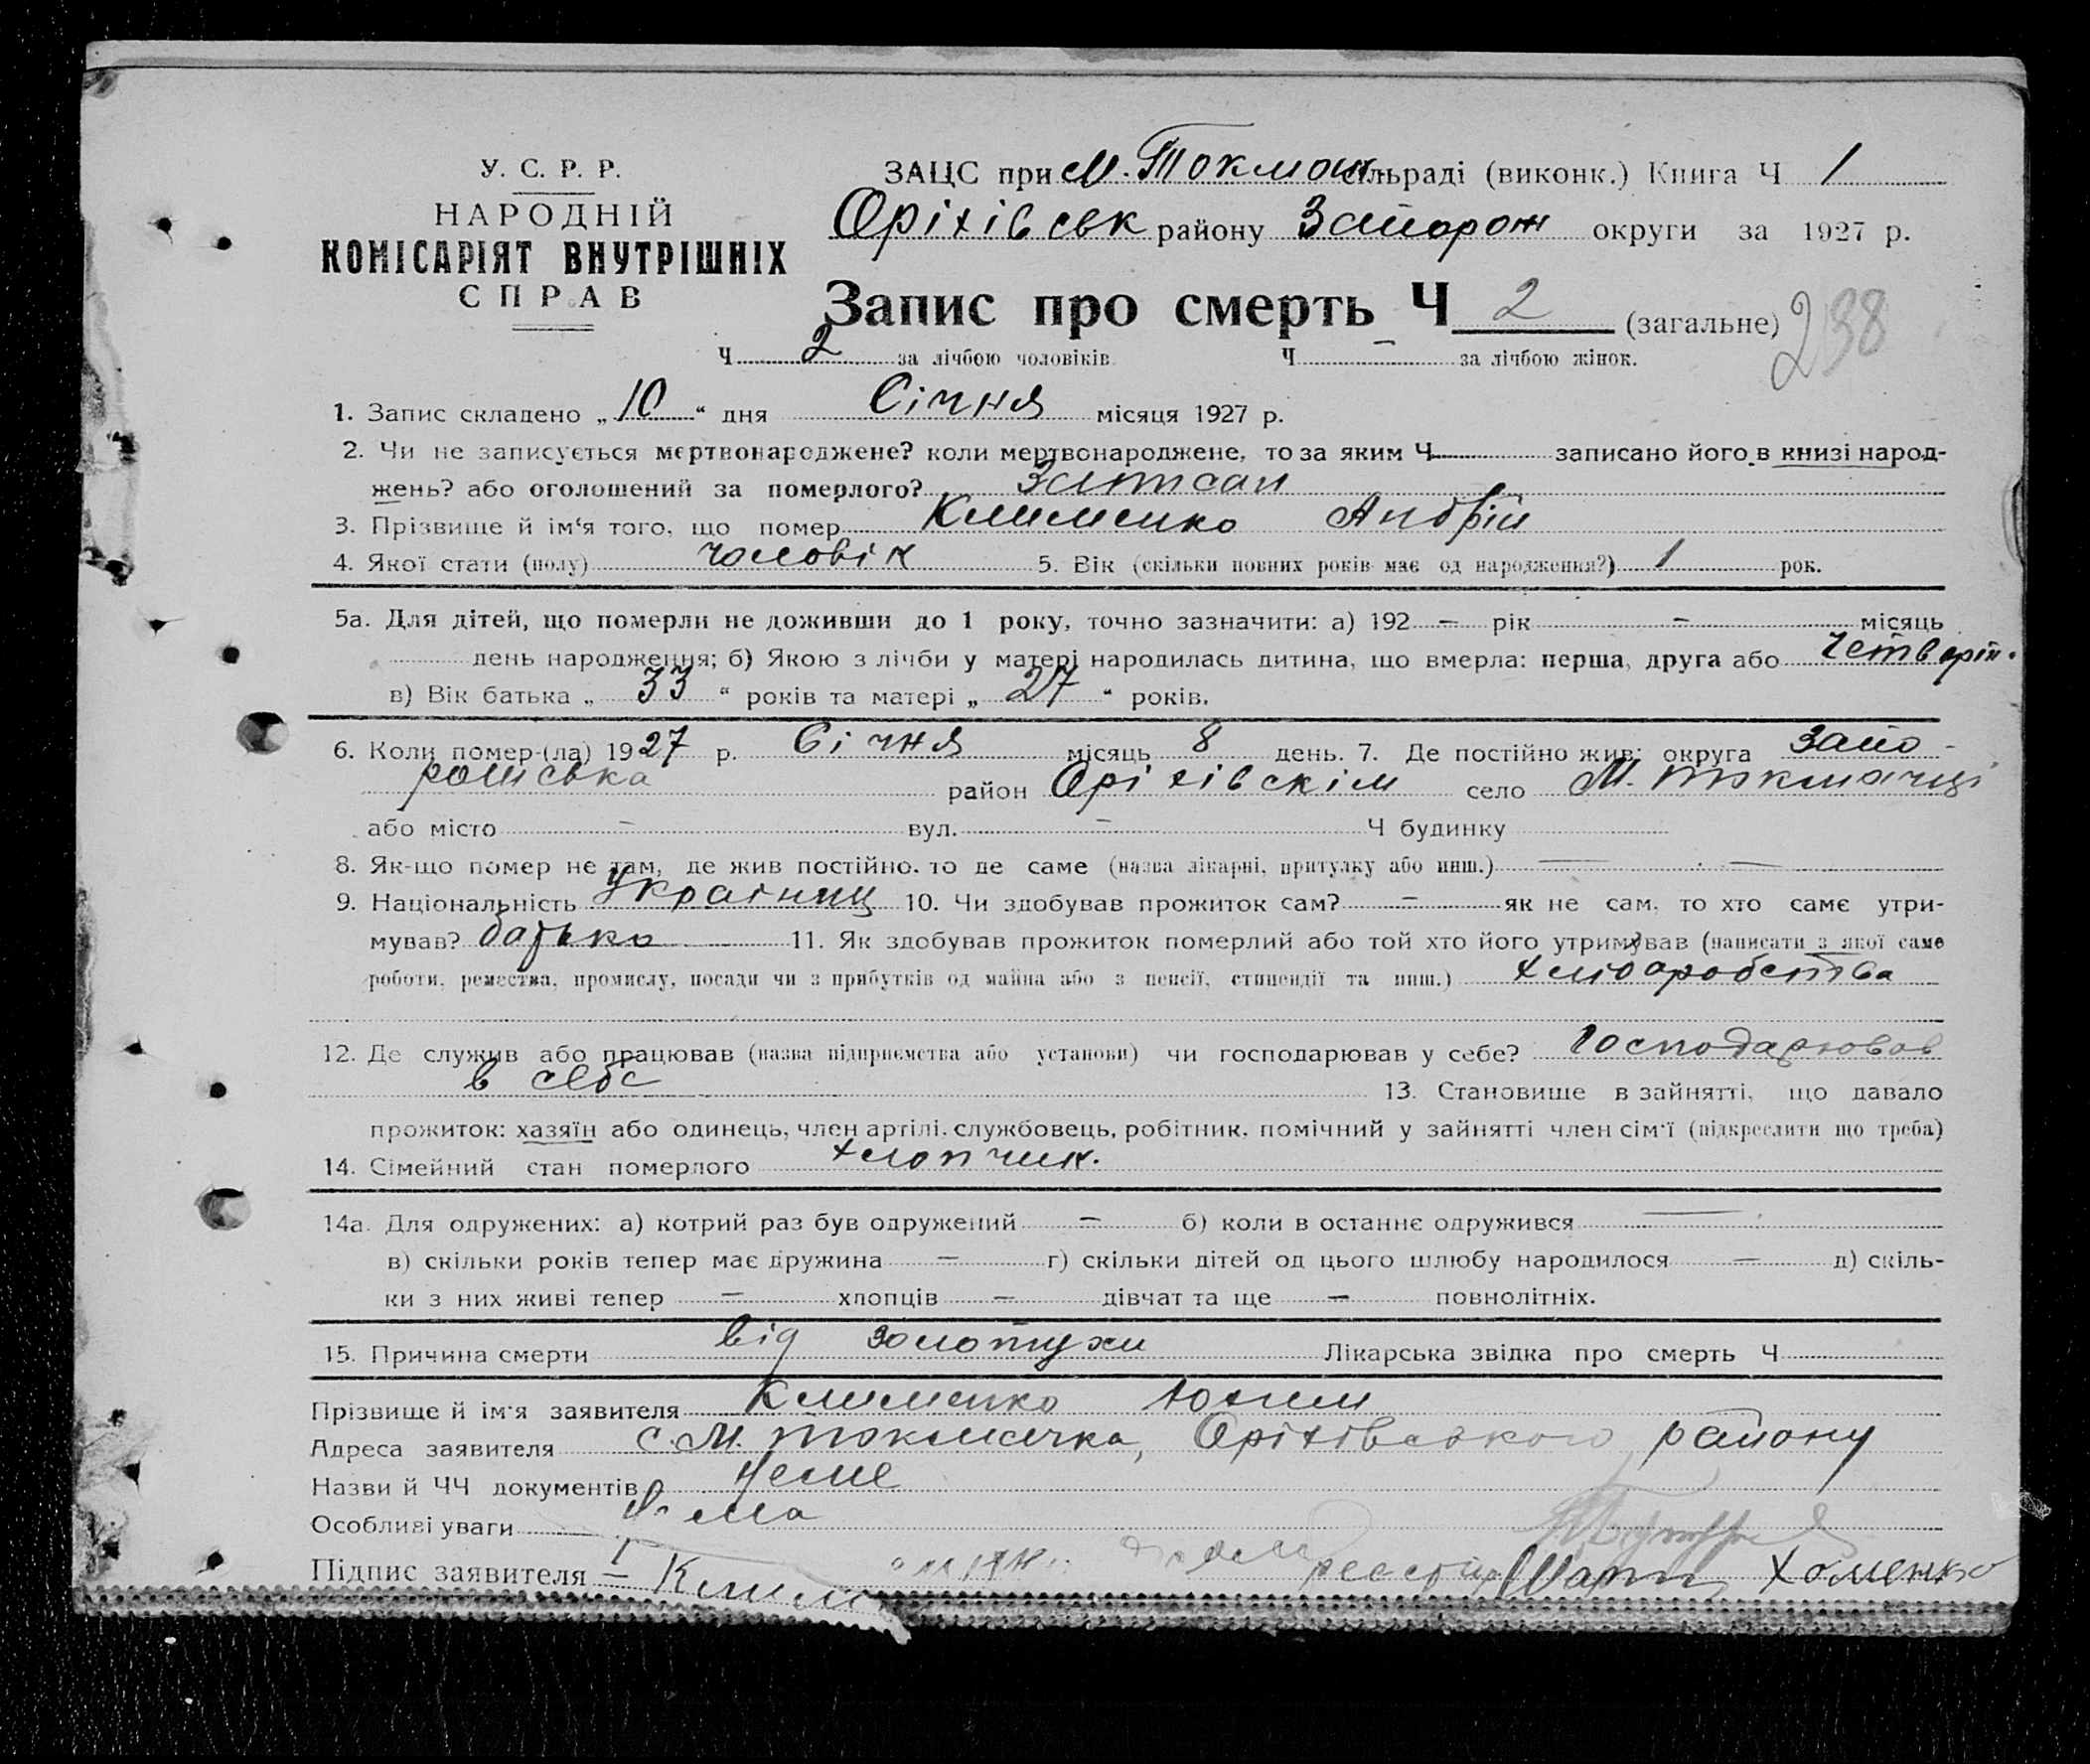 У. С. Р. Р.
НАРОДНІЙ
КОМІСАРІЯТ ВНУТРІШНІХ
СПРАВ
ЗАЦС при М. Токмач сільраді (виконк.) Книга Ч 1
Оріхівськ району Запорож округи за 1927 р.
Запис про смерть Ч 2 (загальне) 238
Ч 2 за лічбою чоловіків Ч - за лічбою жінок.
1. Запис складено „10“ дня Січня місяця 1927 р.
2. Чи не записується мертвонароджене? коли мертвонароджене, то за яким Ч записано його в книзі народ-
жень? або оголошений за померлого? Записан
3. Прізвище й ім‘я того, що помер Клименко Андрій
4. Якої стати (полу) чоловік 5. Вік (скільки повних років має од народження?) 1 рок.
5а. Для дітей, що померли не доживши до 1 року, точно зазначити: а) 192 - рік - місяць
день народження; б) Якою з лічби у матері народилась дитина, що вмерла: перша, друга або
в) Вік батька „33“ років та матері „27“ років.
6. Коли помер-(ла) 1927 р. Січня місяць 8 день. 7. Де постійно жив: округа Запо-
район Оріхівскім село М. Токмачці
або місто - вул. - Ч будинку
8. Як-що помер не там, де жив постійно. то де саме (назва лікарні, притулку або инш.) — —
9. Національність Українец 10. Чи здобував прожиток сам? - як не сам, то хто саме утри-
мував? батько 11. Як здобував прожиток померлий або той хто його утримував (написати з якої саме
роботи, ремества, промислу, посади чи з прибутків од майна або з пенсії, стипендії та инш.) хліборобства
12. Де служив або працював (назва підприємства або установи) чи господарював у себе? Господарював
в себе 13. Становище в зайнятті, що давало
прожиток: хазяїн або одинець, член артілі. службовець, робітник, помічний у зайнятті член сім‘ї (підкреслити що треба)
14. Сімейний стан померлого хлопчик.
14а. Для одружених: а) котрий раз був одружений - б) коли в останнє одружився —
в) скільки років тепер має дружина - г) скільки дітей од цього шлюбу народилося - д) скіль-
ки з них живі тепер - хлопців - дівчат та ще - повнолітніх.
15. Причина смерти від золотухи Лікарська звідка про смерть Ч
Прізвище й ім‘я заявителя Клименко Юхим
Адреса заявителя с. М. Токмачка, Оріхівського району
Назви й ЧЧ документів Неме
Особливі уваги
Підпис заявителя Клим Хоменко